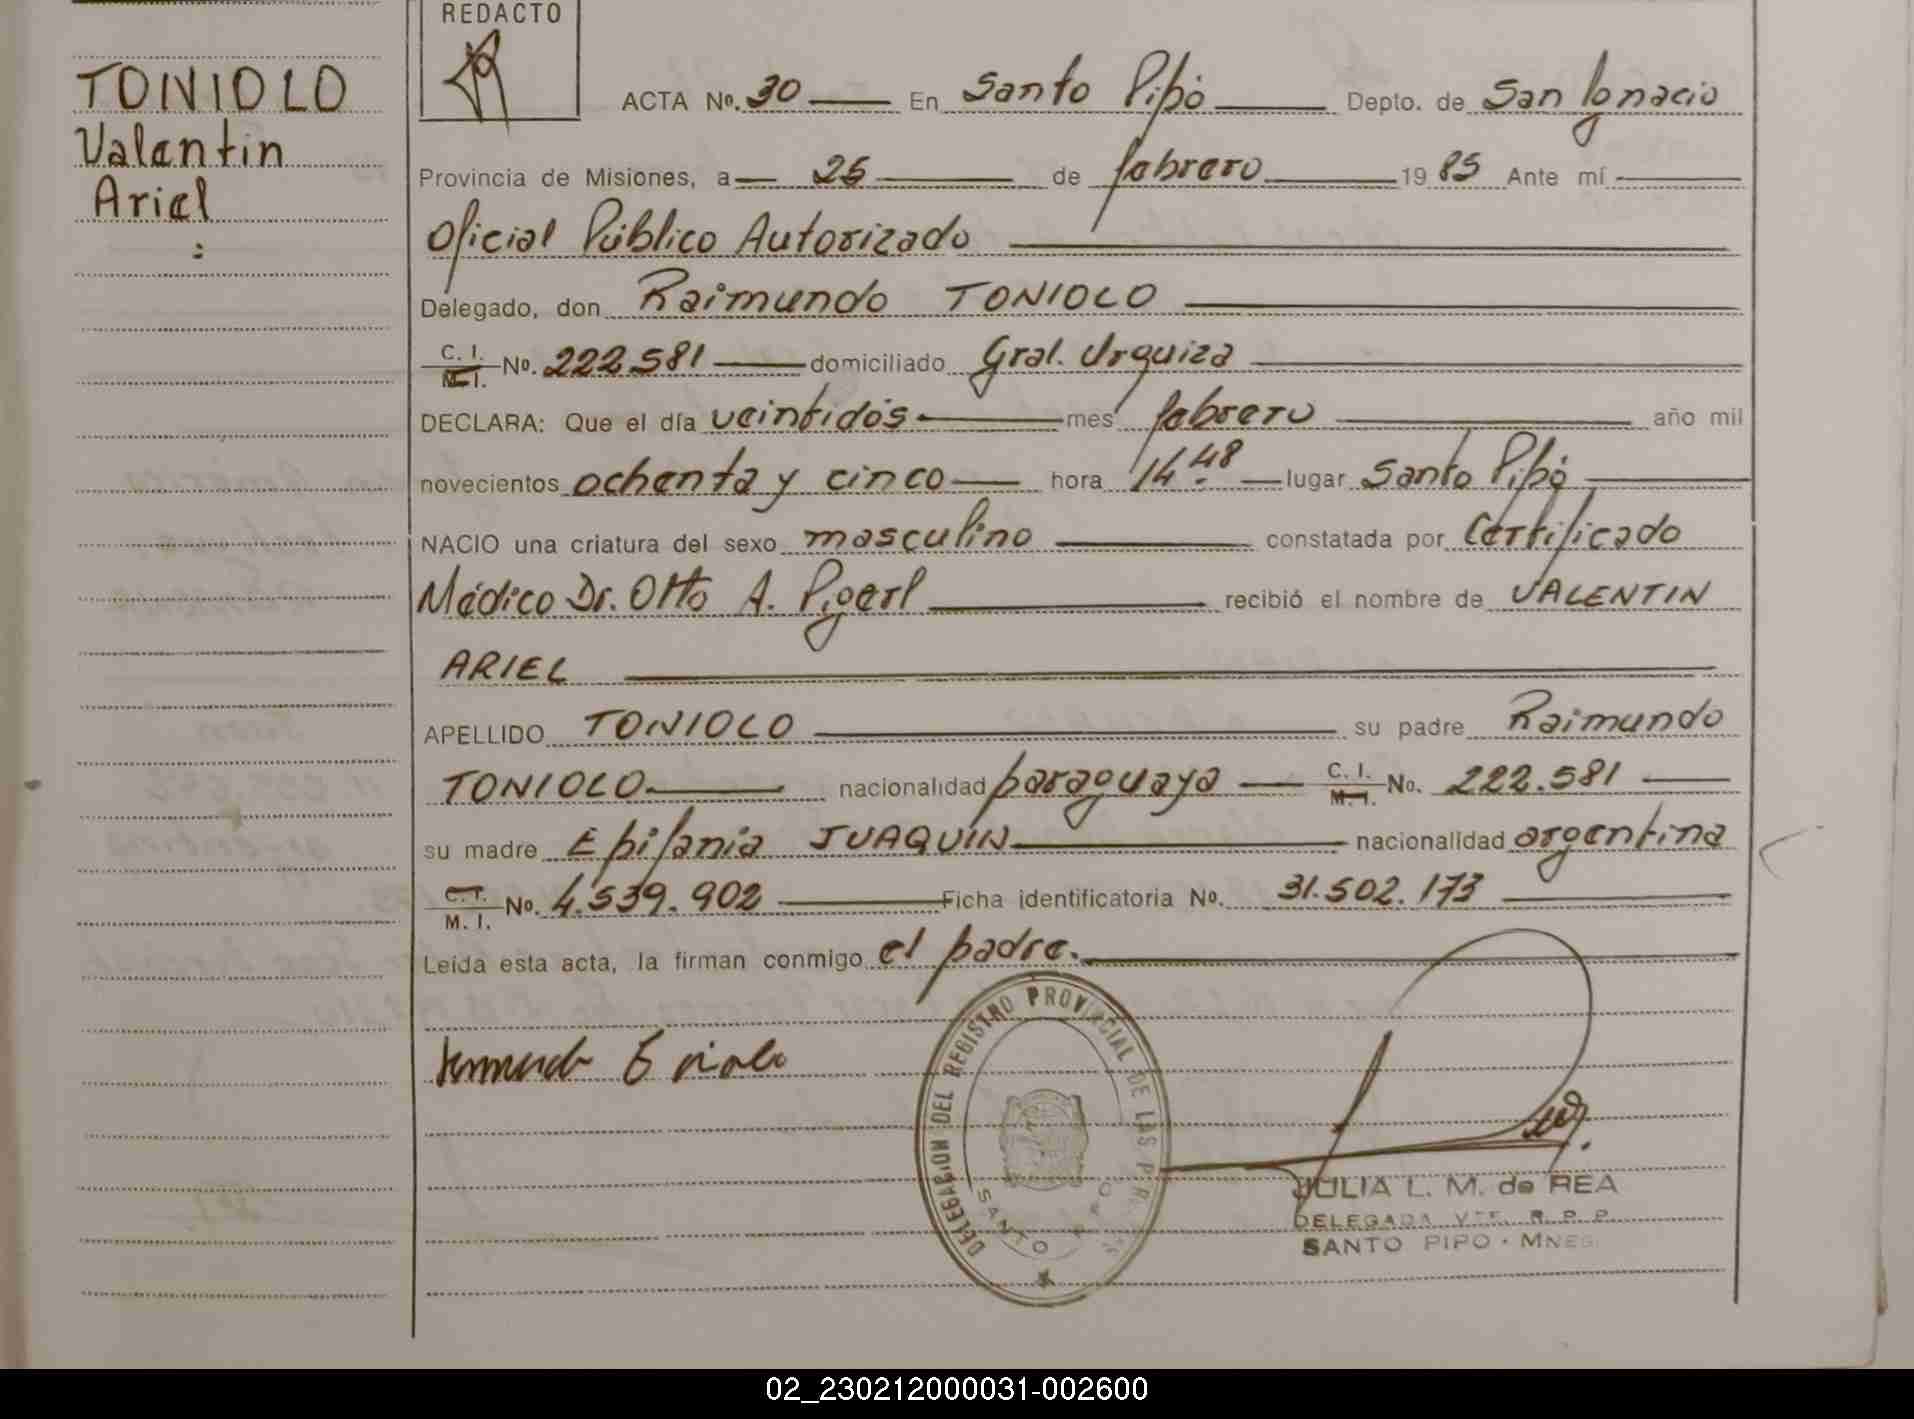 REDACTO
TONIOLO
Valentin
Ariel
:
ACTA No. 30 En Santo Pipó Depto. de San Ignacio
Provincia de Misiones, a 25 de febrero 19 85 Ante mí
Oficial Público Autorizado
Delegado, don Raimundo TONIOLO
C. I. M. I. No. 222.581 domiciliado Gral. Urquiza
DECLARA: Que el día veintidós mes febrero año mil
novecientos ochenta y cinco hora 14.48 lugar Santo Pipó
NACIO una criatura del sexo masculino constatada por Certificado
Médico Dr. Otto A. Pigerl recibió el nombre de VALENTIN
ARIEL
APELLIDO TONIOLO su padre Raimundo
TONIOLO nacionalidad paraguaya C. I. M. I. No. 222.581
su madre Epifania JUAQUIN nacionalidad argentina
C. I. M. I. No. 4.539.902 Ficha identificatoria No. 31.502.173
Leída esta acta, la firman conmigo el padre.
DELEGACION DEL REGISTRO PROVINCIAL DE LAS P
SANTO PIPO
JULIA L. M. de REA
DELEGADA VTE. R.P.P.
SANTO PIPO - MNES.
02_230212000031-002600